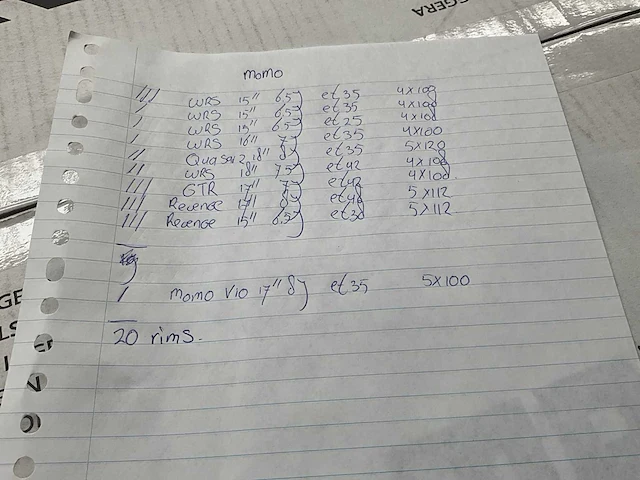 GGERA
momo
/// WRS 15" 6.5J et35 4x108
/ WRS 15" 6.5J et35 4x108
/ WRS 15" 6.5J et25 4x108
/ WRS 16" 7J et35 4x100
// Quasar 2 18" 8J et35 5x120
// WRS 18" 7.5J et42 4x108
/// GTR 17" 7J et42 4x108
/// Revenge 17" 8J et48 5x112
/// Revenge 15" 6.5J et38 5x112
/ momo V10 17" 8J et35 5x100
20 rims.